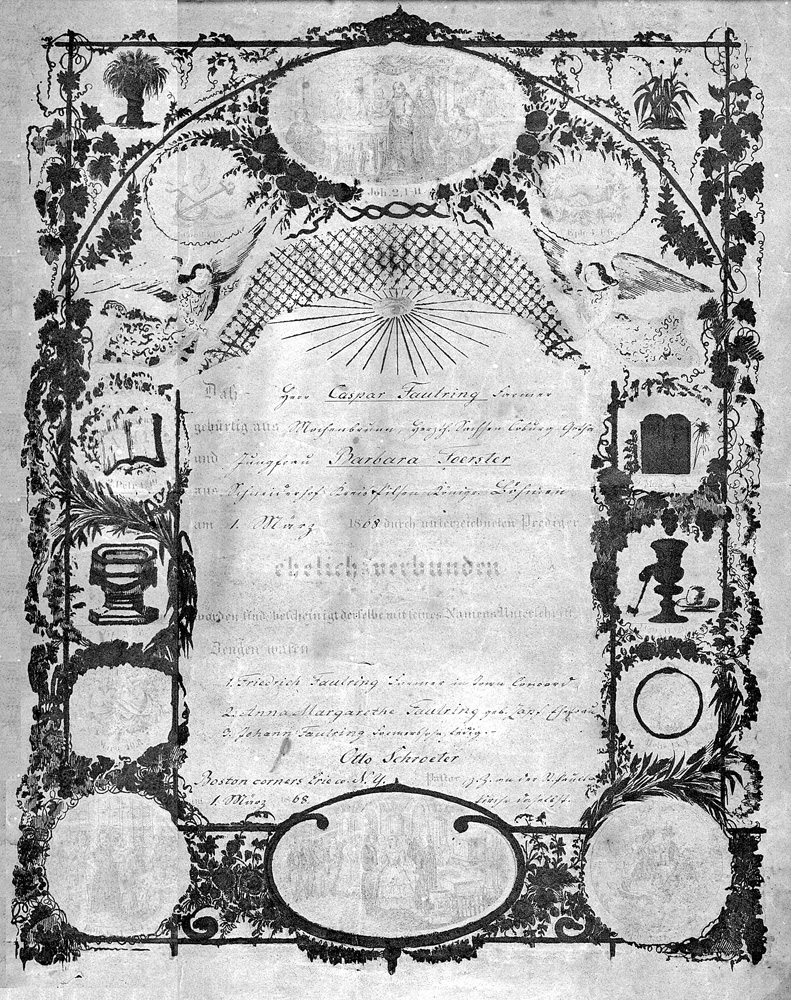 Joh. 2, 1-11.
Eph. 4, 1-6
Daß Herr Caspar Faulring Farmer
gebürtig aus Herzgth. Sachsen Coburg Gotha
und Jungfrau Barbara Foerster
aus Kreis Pilsen Königr. Böhmen
am 1. März 1868 durch unterzeichneten Prediger
ehelich verbunden
worden sind, bescheinigt derselbe mit seines Namens Unterschrift.
Zeugen waren
1. Friedrich Faulring Farmer in Town Concord
2. Anna Margarethe Faulring geb. Zapf Ehefrau
3. Johann Faulring Farmerssohn, ledig.
Otto Schroeter
Boston corners Erie co. N. Y. Pastor
1. März 1868.